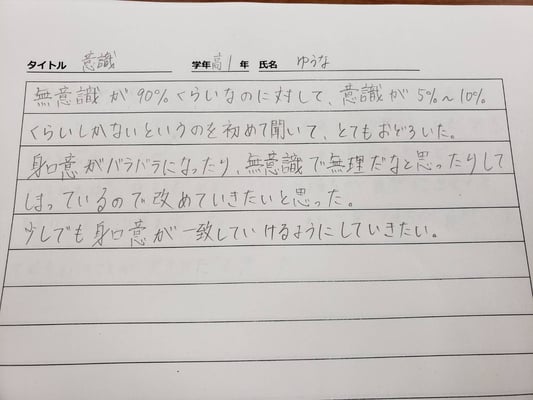 タイトル 意識 学年 高1 年 氏名 ゆうな
無意識が90%くらいなのに対して、意識が5%~10%
くらいしかないというのを初めて聞いて、とてもおどろいた。
身口意がバラバラになったり、無意識で無理だなと思ったりして
しまっているので改めていきたいと思った。
少しでも身口意が一致していけるようにしていきたい。